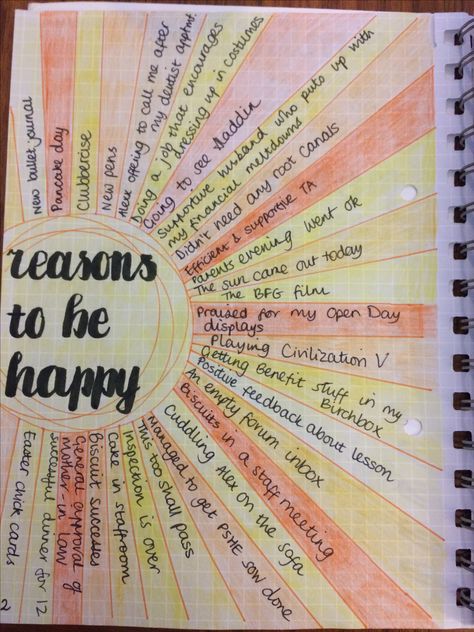 reasons
to be
happy
New bullet journal
Pancake day
Clubbercise
New pens
Alex offering to call me after
my dentist apptmt
Doing a job that encourages
dressing up in costumes
Going to see Aladdin
Supportive husband who puts up with
my financial meltdowns
Didn't need any root canals
Efficient & supportive TA
Parents evening went ok
The sun came out today
The BFG film
Praised for my Open Day
displays
Playing Civilization V
Getting Benefit stuff in my
Birchbox
Positive feedback about lesson
An empty forum inbox
Biscuits in a staff meeting
Cuddling Alex on the sofa
Managed to get PSHE SOW done
This too shall pass
Inspection is over
Cake in staffroom
Biscuit successes
General approval of
mother-in law
Successful dinner for 12
Easter chick cards
2